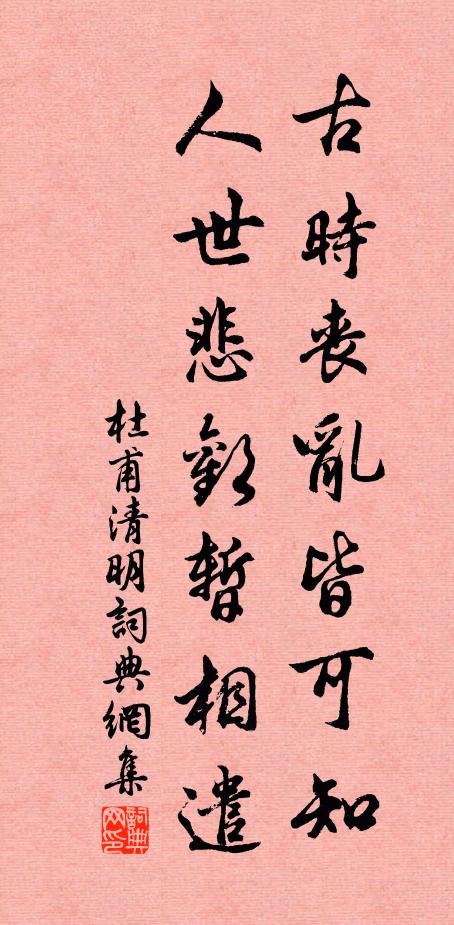 古時喪亂皆可知
人世悲歡暫相遣
杜甫清明詞典網集
詞典網印